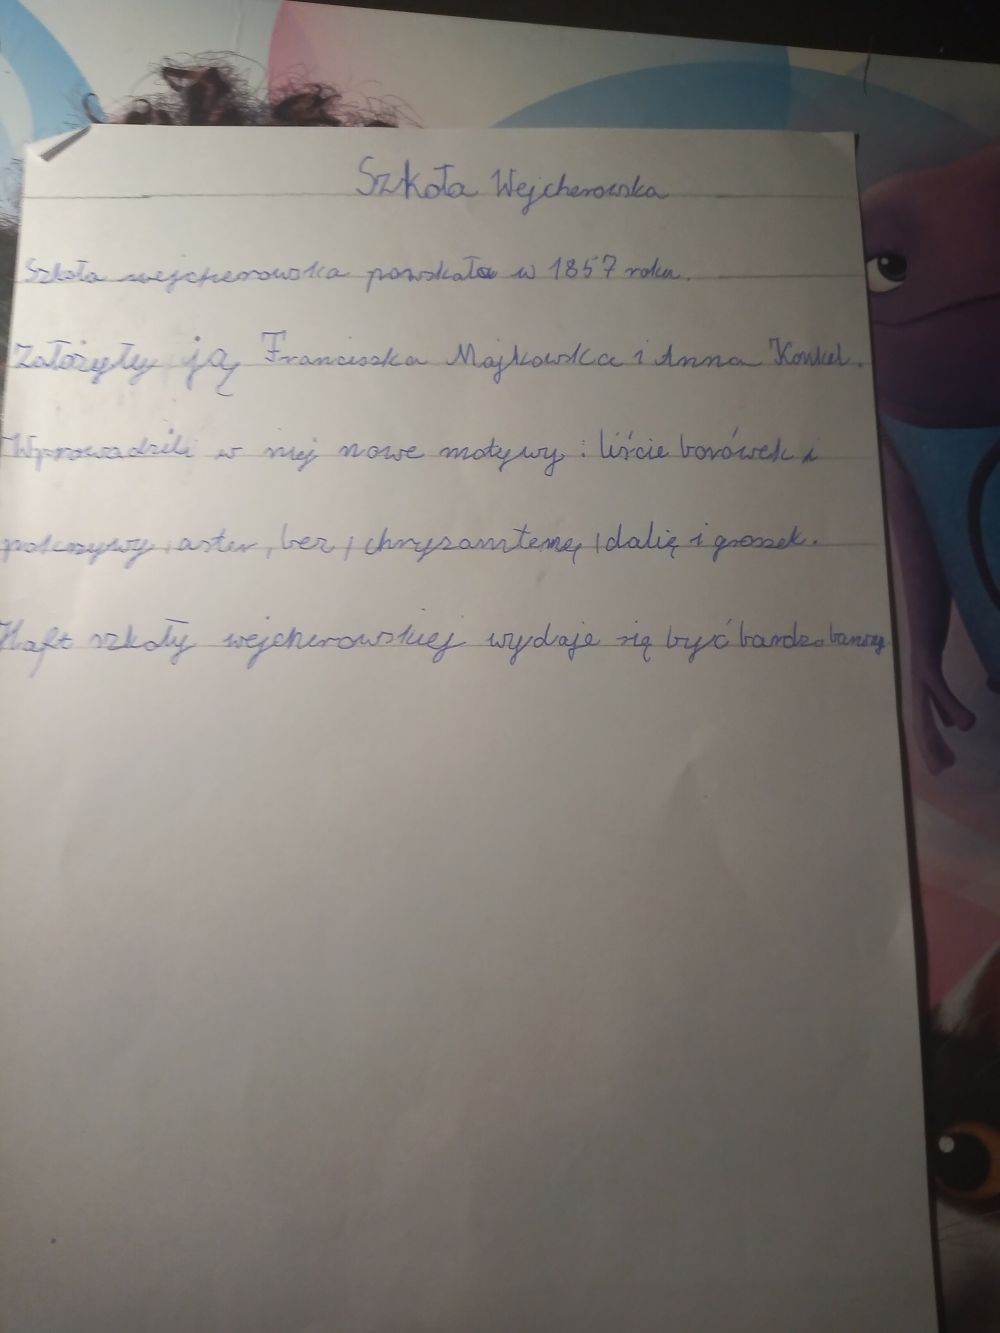 Szkoła Wejcherowska
Szkoła wejcherowska powskała w 1857 roku.
Założyły ją Franciszka Majkowska i Anna Konkel.
Wprowadzili w niej nowe motywy : liście borówek i
pokrzywy, aster, bez, chryzantemę, dalię i groszek.
Haft szkoły wejcherowskiej wydaje się być bardzo